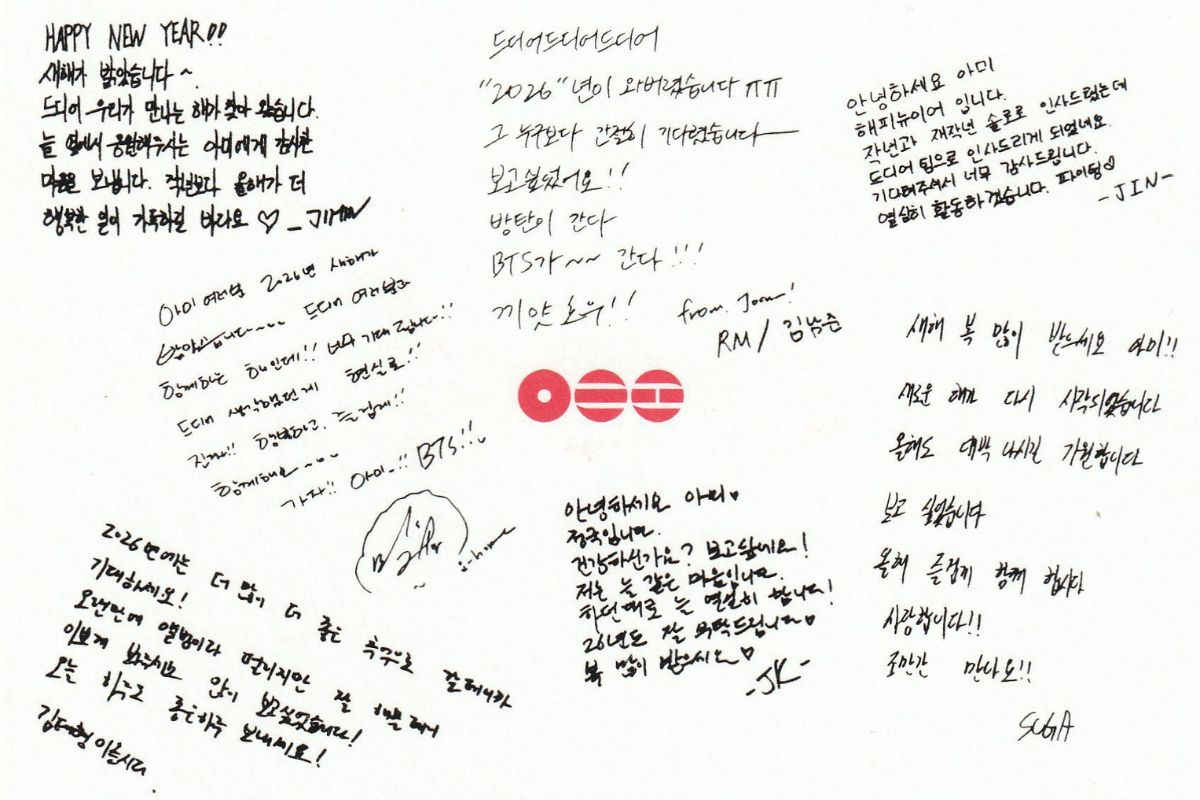 HAPPY NEW YEAR!!
새해가 밝았습니다~
드디어 우리가 만나는 해가 찾아 왔습니다.
늘 옆에서 응원해주시는 아미에게 감사한
마음을 보냅니다. 작년보다 올해가 더
행복한 일이 가득하길 바라요 ♡ -JIMIN
드디어드디어드디어
"2026"년이 와버렸습니다 ㅠㅠ
그 누구보다 간절히 기다렸습니다
보고싶었어요!!
방탄이 간다
BTS가~~ 간다!!!
끼얏호우!!
from. Joon!
RM / 김남준
안녕하세요 아미
해피뉴이어 입니다.
작년과 재작년 솔로로 인사드렸는데
드디어 팀으로 인사드리게 되었네요.
기다려주셔서 너무 감사드립니다.
열심히 활동하겠습니다. 파이팅♡
-JIN-
아미 여러분 2026년 새해가
밝았습니다~ 드디어 여러분과
함께하는 해인데!! 너무 기대됩니다!!
드디어 생각했던게 현실로!!
진짜!! 행복하고, 즐겁게!!
함께해요~
가자!! 아미!! BTS!!
j-hope
새해 복 많이 받으세요 아미!!
새로운 해가 다시 시작되었습니다
올해도 대박 나시길 기원합니다
보고 싶었습니다
올해 즐겁게 함께 합시다
사랑합니다!!
조만간 만나요!!
SUGA
안녕하세요 아미♥
정국입니다.
건강하신가요? 보고싶네요!
저는 늘 같은 마음입니다.
하던대로 늘 열심히 합니다!
26년도 잘 부탁드립니다♥
복 많이 받으시오♥
-JK-
2026년에는 더 많이 더 좋은 추억으로 갈테니까
기대하세요!
오랜만에 앨범이라 떨리지만 잘 해볼테니
이쁘게 봐주시고 많이 보고싶었습니다!
오늘 하루도 좋은하루 보내세요!
김태형 이올시다.